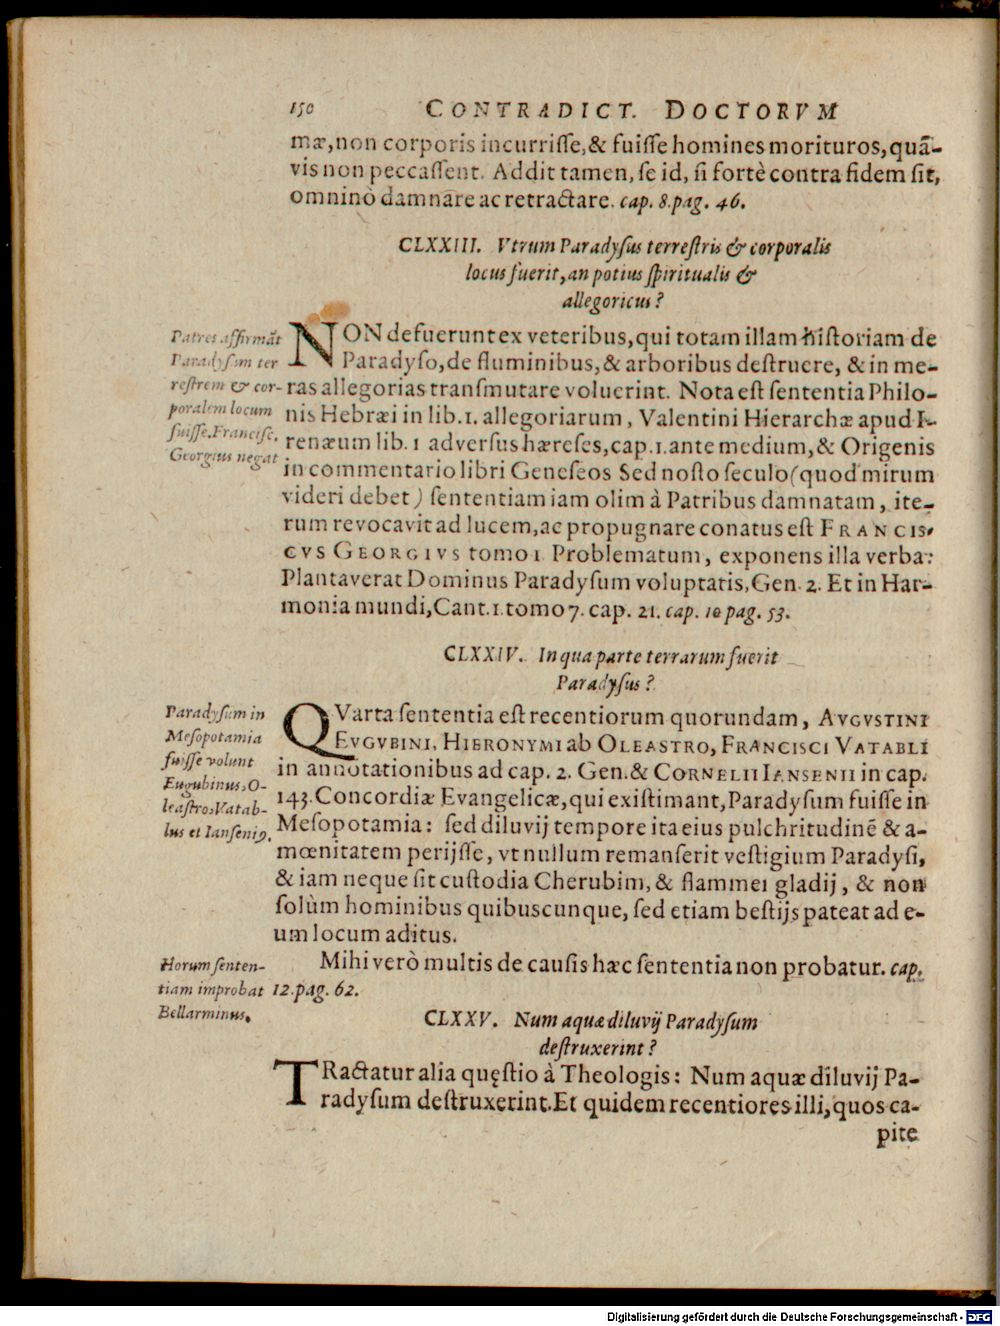 150 CONTRADICT. DOCTORVM
mæ, non corporis incurriſſe, & fuiſſe homines morituros, quā-
vis non peccaſſent. Addit tamen, ſe id, ſi fortè contra fidem ſit,
omninò damnare ac retractare. cap. 8. pag. 46.
CLXXIII. Vtrum Paradyſus terreſtris & corporalis
locus fuerit, an potius ſpiritualis &
allegoricus?
Patres affirmāt
Paradyſum ter
reſtrem & cor-
poralem locum
fuiſſe. Franciſc.
Georgius negat
NON defuerunt ex veteribus, qui totam illam hiſtoriam de
Paradyſo, de fluminibus, & arboribus deſtruere, & in me-
ras allegorias tranſmutare voluerint. Nota eſt ſententia Philo-
nis Hebræi in lib. 1. allegoriarum, Valentini Hierarchæ apud I-
renæum lib. 1 adverſus hæreſes, cap. 1. ante medium, & Origenis
in commentario libri Geneſeos Sed noſto ſeculo (quod mirum
videri debet) ſententiam iam olim à Patribus damnatam, ite-
rum revocavit ad lucem, ac propugnare conatus eſt FRANCIS-
CVS GEORGIVS tomo 1 Problematum, exponens illa verba:
Plantaverat Dominus Paradyſum voluptatis, Gen. 2. Et in Har-
monia mundi, Cant. 1. tomo 7. cap. 21. cap. 10 pag. 53.
CLXXIV. In qua parte terrarum fuerit
Paradyſus?
Paradyſum in
Meſopotamia
fuiſſe volunt
Eugubinus, O-
leaſtro, Vatab-
lus et Ianſeniꝰ.
QVarta ſententia eſt recentiorum quorundam, AVGVSTINI
EVGVBINI, HIERONYMI ab OLEASTRO, FRANCISCI VATABLI
in annotationibus ad cap. 2. Gen. & CORNELII IANSENII in cap.
143. Concordiæ Evangelicæ, qui exiſtimant, Paradyſum fuiſſe in
Meſopotamia: ſed diluvij tempore ita eius pulchritudinē & a-
mœnitatem perijſſe, vt nullum remanſerit veſtigium Paradyſi,
& iam neque ſit cuſtodia Cherubim, & flammei gladij, & non
ſolùm hominibus quibuscunque, ſed etiam beſtijs pateat ad e-
um locum aditus.
Horum ſenten-
tiam improbat
Bellarminus.
Mihi verò multis de cauſis hæc ſententia non probatur. cap.
12. pag. 62.
CLXXV. Num aquæ diluvij Paradyſum
deſtruxerint?
TRactatur alia quęſtio à Theologis: Num aquæ diluvij Pa-
radyſum deſtruxerint. Et quidem recentiores illi, quos ca-
pite
Digitalisierung gefördert durch die Deutsche Forschungsgemeinschaft - DFG